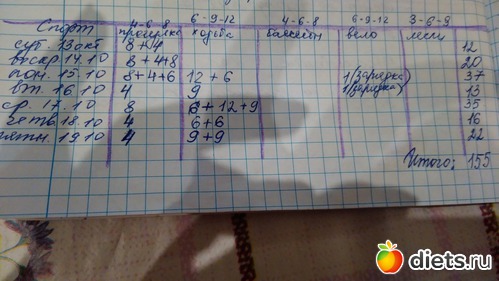 Спорт 4-6-8 6-9-12 4-6-8 6-9-12 3-6-9
прогулка ходьба бассейн вело лесн
суб. 13 окт 8+4 12
воскр 14.10 8+4+8 20
пон. 15.10 8+4+6 12+6 1(зарядка) 37
вт. 16.10 4 9 1(зарядка) 13
ср. 17.10 8 6+12+9 35
четв. 18.10 4 6+6 16
пятн. 19.10 4 9+9 22
Итого: 155
diets.ru